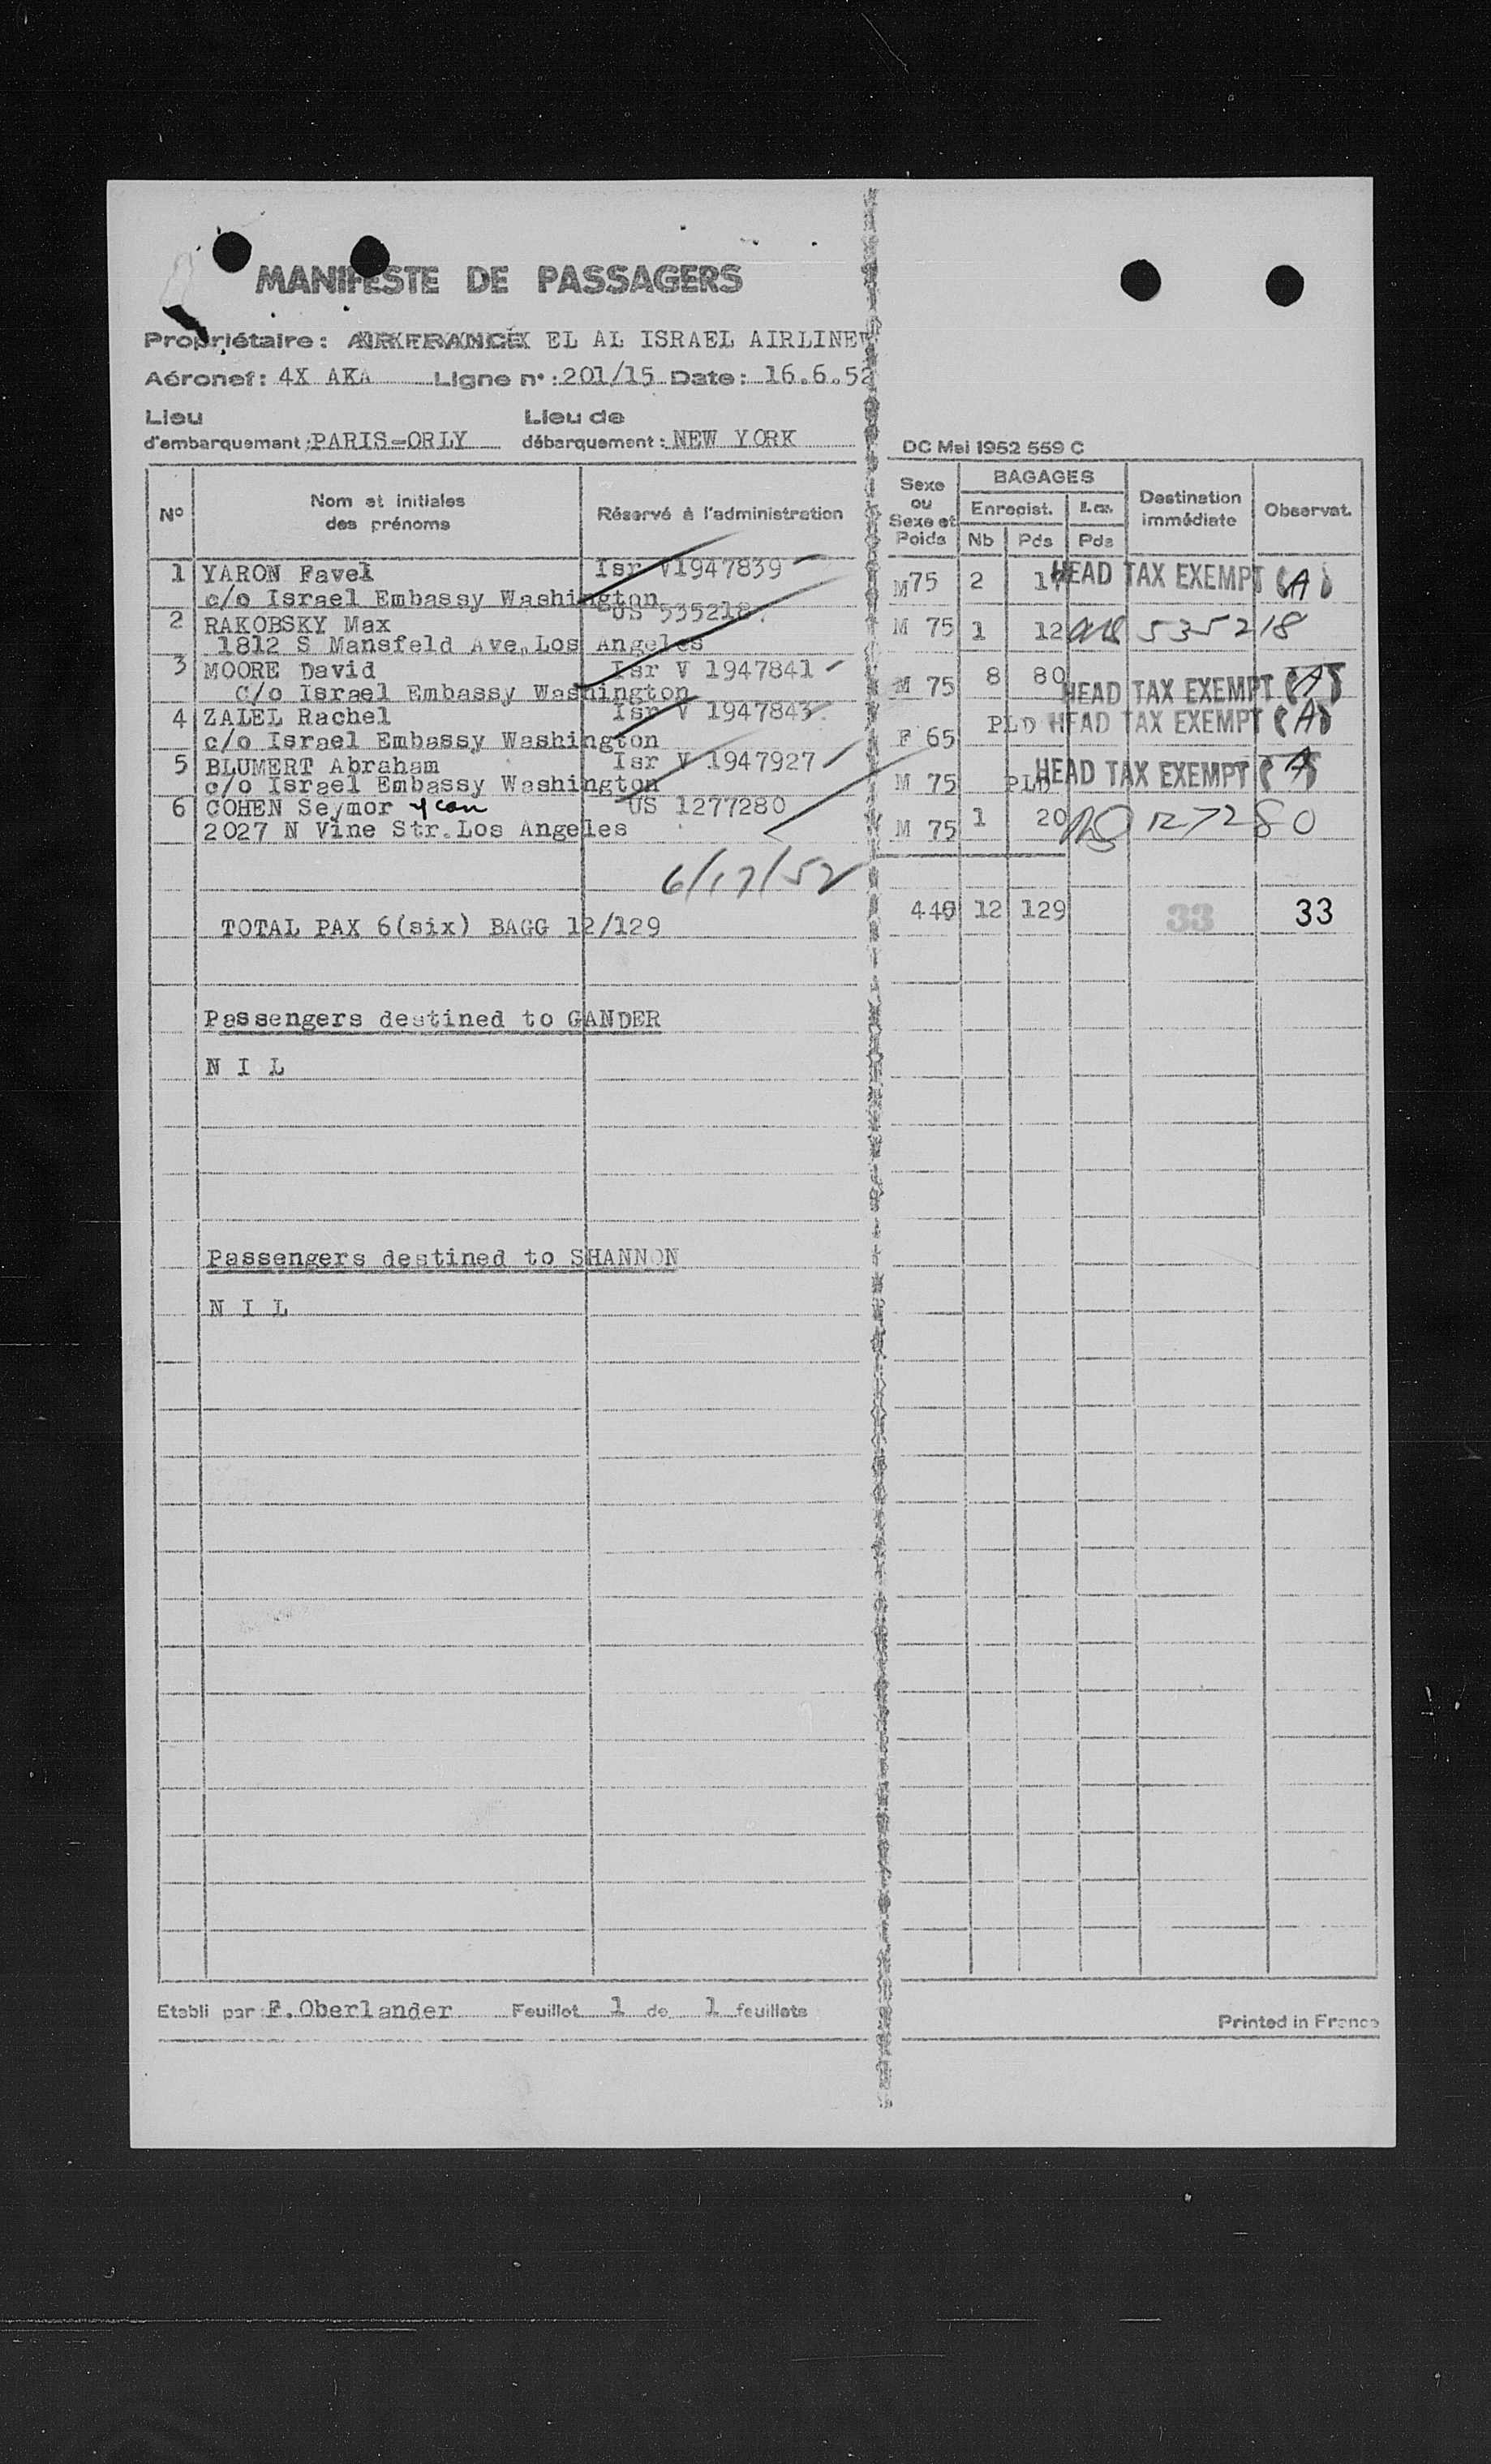 MANIFESTE DE PASSAGERS
Propriétaire: AIR FRANCE EL AL ISRAEL AIRLINES
Aéronef: 4X AKA Ligne n°: 201/15 Date: 16.6.52
Lieu d'embarquement: PARIS-ORLY Lieu de débarquement: NEW YORK
DC Mai 1952 559 C
N° Nom et initiales des prénoms Réservé à l'administration Sexe ou Sexe et Poids BAGAGES Enregist. Nb Pds Pds Destination immédiate Observat.
1 YARON Favel Isr V1947839 M75 2 17 HEAD TAX EXEMPT (A)
c/o Israel Embassy Washington
2 RAKOBSKY Max US 535218. M 75 1 12 535218
1812 S Mansfeld Ave, Los Angeles
3 MOORE David Isr V 1947841 M 75 8 80 HEAD TAX EXEMPT (A)
C/o Israel Embassy Washington
4 ZALEL Rachel Isr V 1947843 F 65 PLD HEAD TAX EXEMPT (A)
c/o Israel Embassy Washington
5 BLUMERT Abraham Isr V 1947927 M 75 PLD HEAD TAX EXEMPT (A)
c/o Israel Embassy Washington
6 COHEN Seymor US 1277280 M 75 1 20 127280
2027 N Vine Str. Los Angeles
6/17/52
TOTAL PAX 6(six) BAGG 12/129 440 12 129 33 33
Passengers destined to GANDER
N I L
Passengers destined to SHANNON
N I L
Etabli par: F. Oberlander Feuillet 1 de 1 feuillets
Printed in France